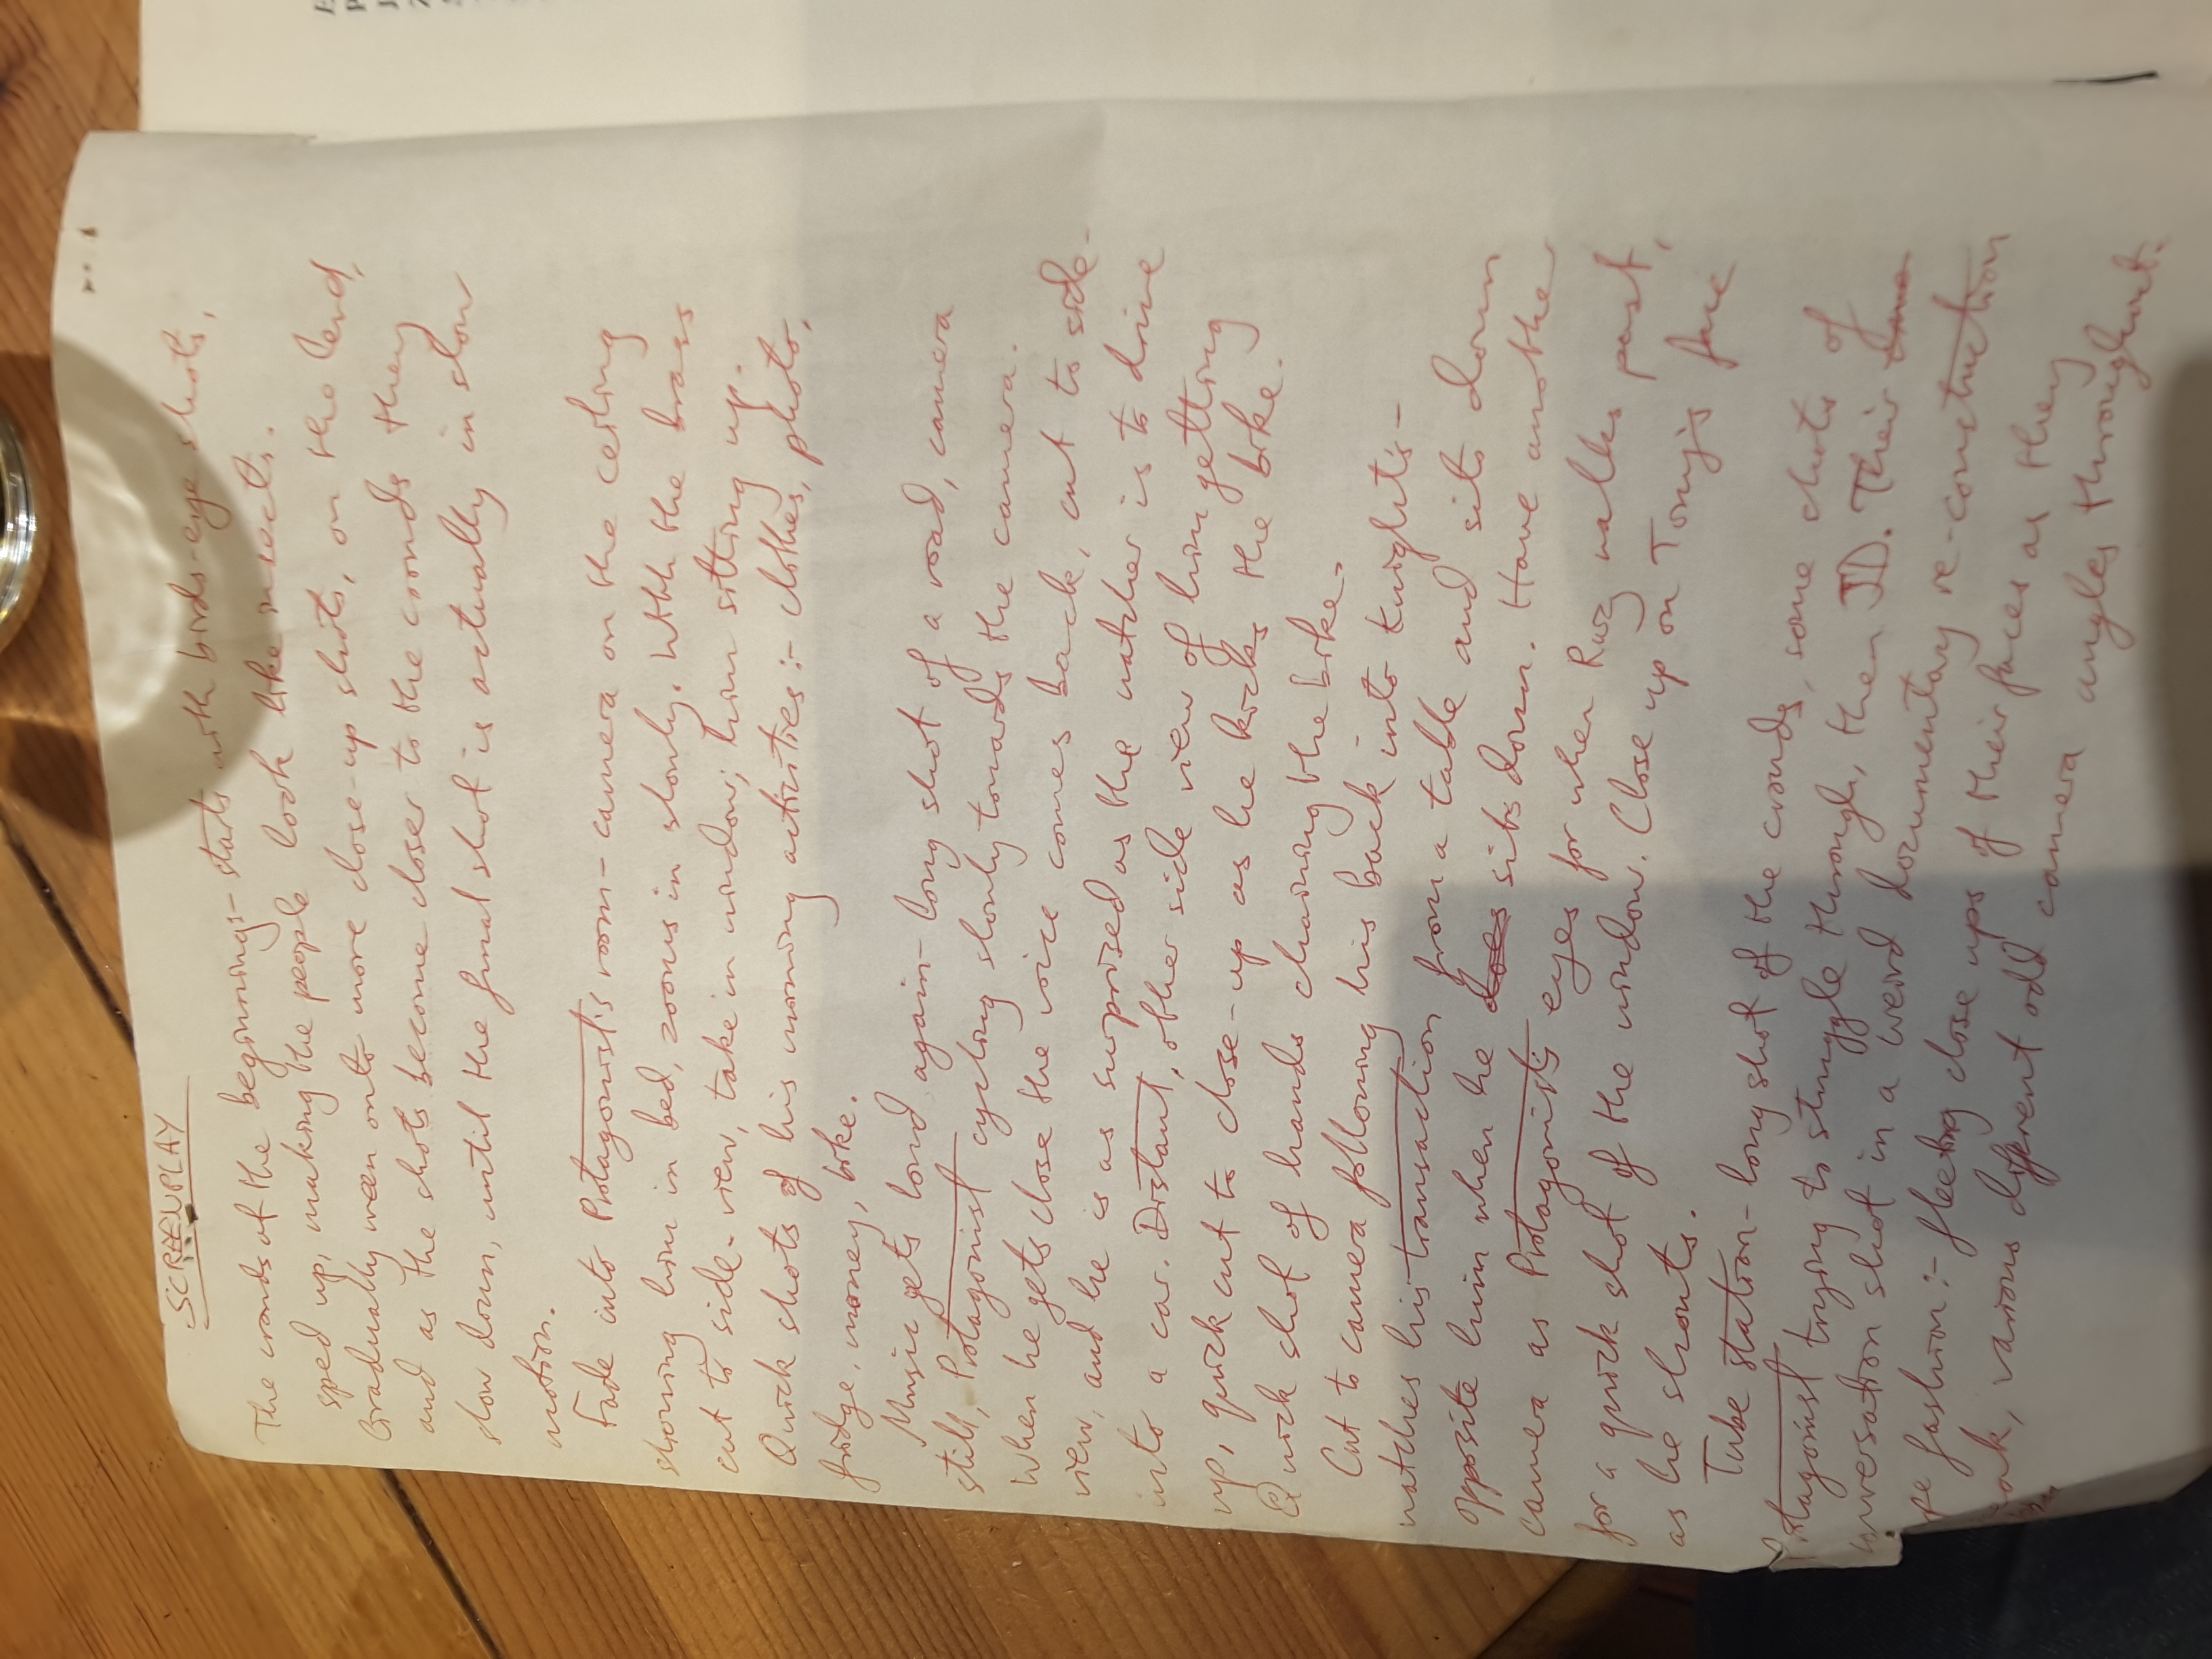 SCREENPLAY
The crowds of the beginning:- starts with birds-eye shots,
sped up, making the people look like insects.
Gradually ween onto more close-up shots, on the level,
and as the shots become closer to the crowds they
slow down, until the final shot is actually in slow
motion.
Fade into Protagonist's room - camera on the ceiling
showing him in bed, zooms in slowly. With the brass
cut to side-view, take in window; him sitting up.
Quick shots of his morning activities:- clothes, photo,
fridge, money, bike.
Music gets loud again - long shot of a road, camera
still, Protagonist cycling slowly towards the camera.
When he gets close the voice comes back, cut to side-
view, and he is as surprised as the watcher is to drive
into a car. Distant, other side view of him getting
up, quick cut to close-up as he kicks the bike.
Quick shot of hands chaining the bike.
Cut to camera following his back into Knight's -
watches his transaction from a table and sits down
opposite him when he does sits down. Have another
camera as Protagonist's eyes for when walks past,
for a quick shot of the window. Close up on Tony's face
as he shouts.
Tube station - long shot of the crowds, some shots of
Protagonist trying to struggle through, then JD. Their
conversation shot in a weird documentary re-construction
type fashion:- fleeting close ups of their faces as they
various different odd camera angles throughout.